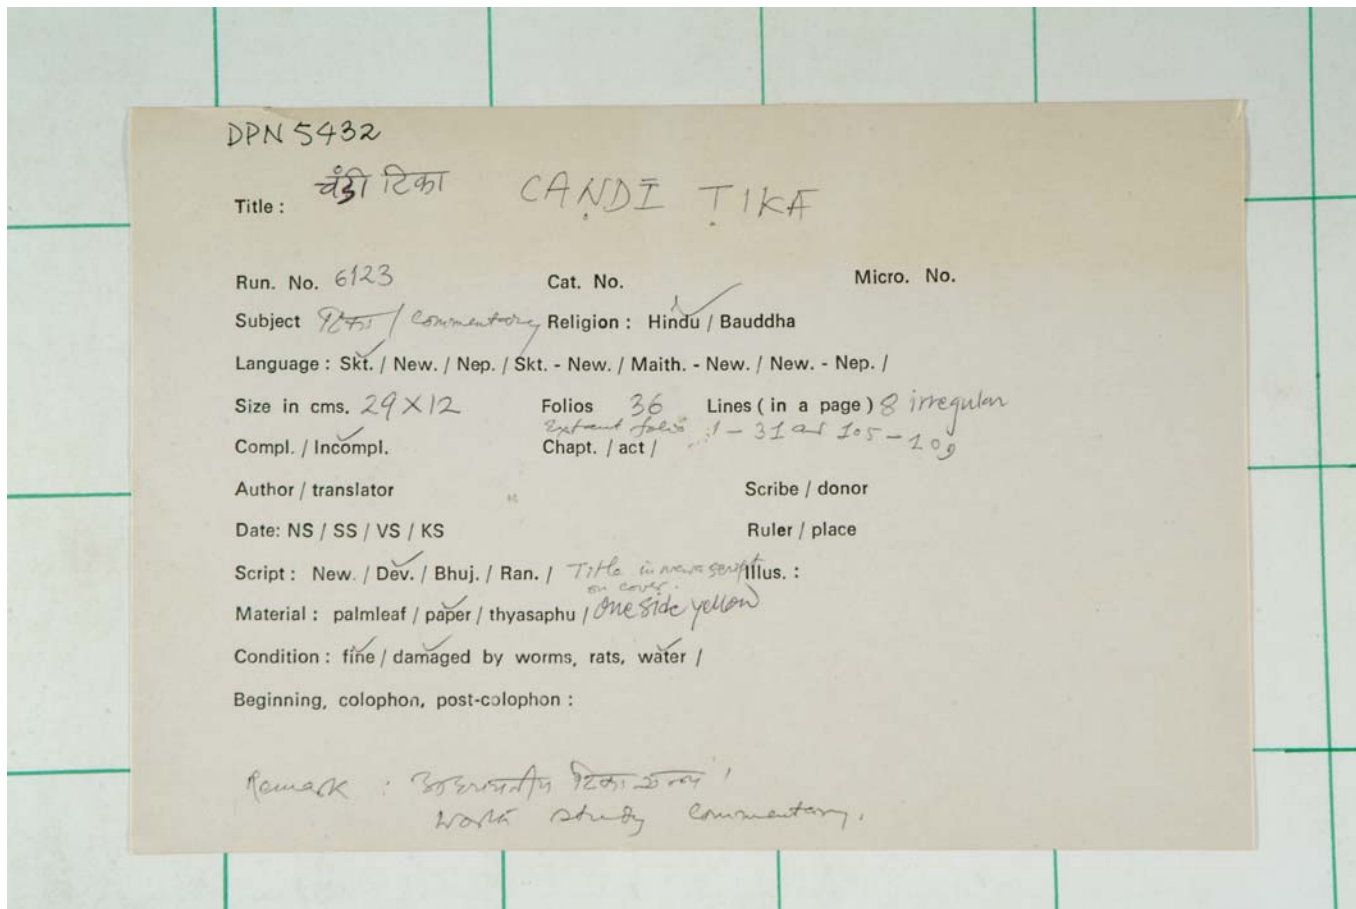 DPN 5432
Title : चंडी टिका CAṆḌĪ ṬIKA
Run. No. 6123 Cat. No. Micro. No.
Subject टिका / Commentary Religion : Hindu / Bauddha
Language : Skt. / New. / Nep. / Skt. - New. / Maith. - New. / New. - Nep. /
Size in cms. 29 X 12 Folios 36 Lines ( in a page ) 8 irregular
Extant folio 1 - 31 and 105 - 109
Compl. / Incompl. Chapt. / act /
Author / translator Scribe / donor
Date: NS / SS / VS / KS Ruler / place
Script : New. / Dev. / Bhuj. / Ran. / Title in newa script Illus. :
on cover.
Material : palmleaf / paper / thyasaphu / One side yellow
Condition : fine / damaged by worms, rats, water /
Beginning, colophon, post-colophon :
Remark : टिका ग्रन्थ ।
worth study commentary.